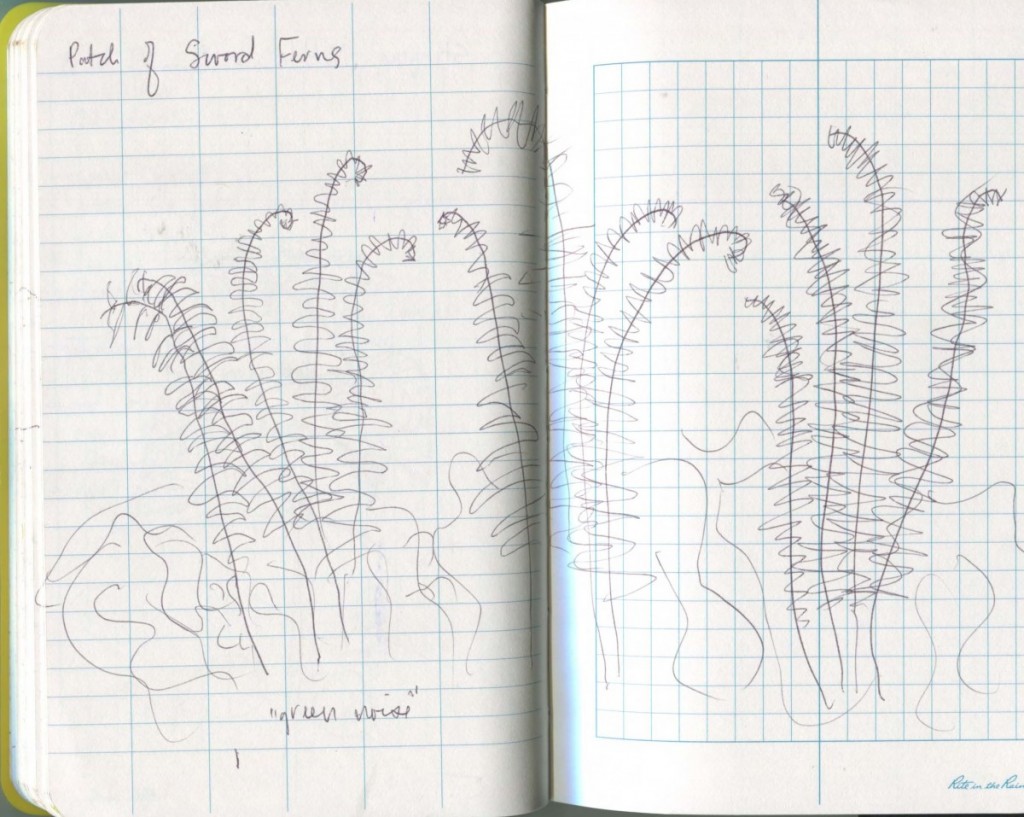 Patch of Sword Ferns
"green noise"
Rite in the Rain